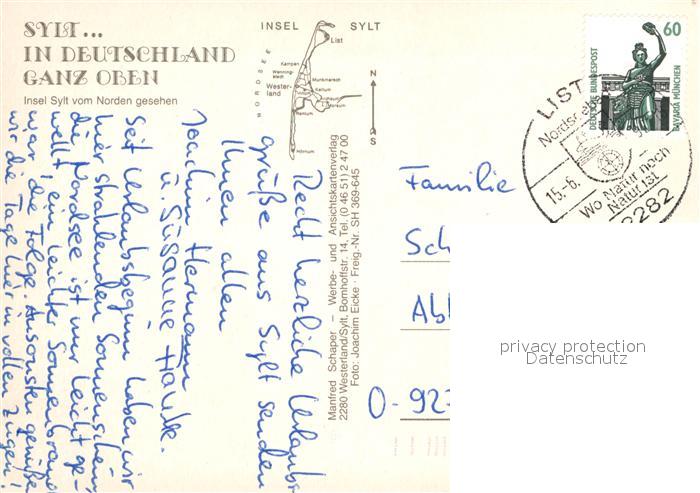 SYLT...
IN DEUTSCHLAND
GANZ OBEN
Insel Sylt vom Norden gesehen
INSEL SYLT
NORDSEE
List
Kampen
Wenning-
stedt
Wester-
land
Munkmarsch
Keitum
Archsum
Morsum
Rantum
Hörnum
N
S
60
DEUTSCHE BUNDESPOST
BAVARIA MÜNCHEN
LIST
15.-6.
Wo Natur noch
Natur ist
2282
Manfred Schaper – Werbe- und Ansichtskartenverlag
2280 Westerland/Sylt, Bomhoffstr. 14, Tel. (0 46 51) 2 47 00
Foto: Joachim Eicke · Freig.-Nr. SH 369-645
Recht herzliche Urlaubs-
grüße aus Sylt senden
Ihnen allen
Joachim Hermann
u. Susanne Hauke.
Seit Urlaubsbeginn haben wir
hier strahlenden Sonnenschein,
die Nordsee ist nur leicht ge-
wellt, ein leichter Sonnenbrand
war die Folge. Ansonsten genießen
wir die Tage hier in vollen Zügen!
Familie
Sch
Ab
O-92
privacy protection
Datenschutz